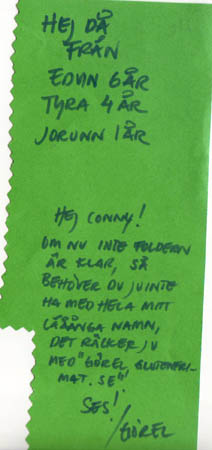 HEJ DÅ
FRÅN
EDVIN 6 ÅR
TYRA 4 ÅR
JORUNN 1 ÅR
HEJ CONNY!
OM NU INTE FOLDERN
ÄR KLAR, SÅ
BEHÖVER DU JU INTE
HA MED HELA MITT
LÅÅÅNGA NAMN,
DET RÄCKER JU
MED "GÖREL GLUTENFRI-
MAT.SE"!
SES!
/GÖREL